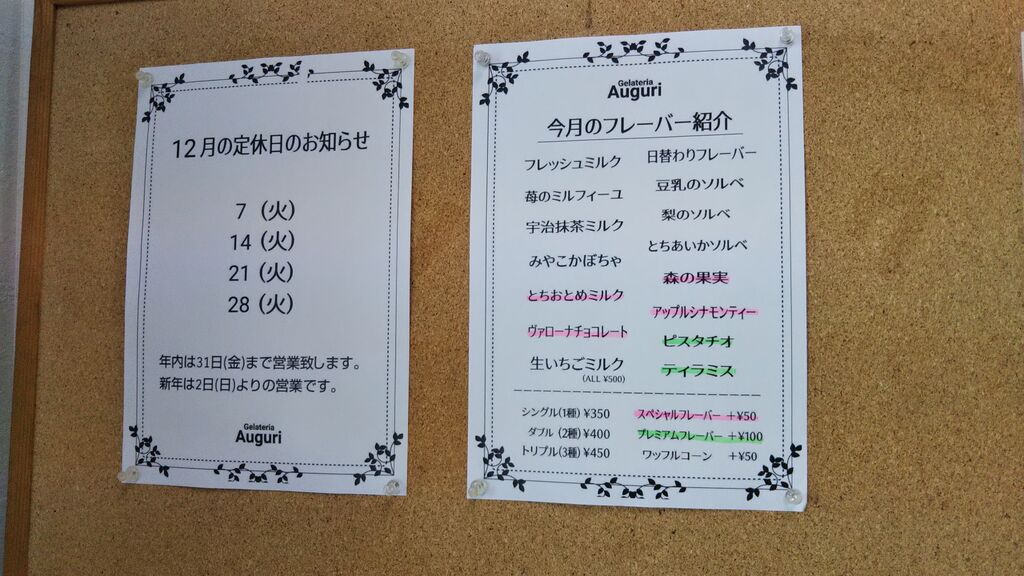 12月の定休日のお知らせ
7 (火)
14 (火)
21 (火)
28 (火)
年内は31日(金)まで営業致します。
新年は2日(日)よりの営業です。
Gelateria
Auguri
Gelateria
Auguri
今月のフレーバー紹介
フレッシュミルク
苺のミルフィーユ
宇治抹茶ミルク
みやこかぼちゃ
とちおとめミルク
ヴァローナチョコレート
生いちごミルク
(ALL ¥500)
日替わりフレーバー
豆乳のソルベ
梨のソルベ
とちあいかソルベ
森の果実
アップルシナモンティー
ピスタチオ
ティラミス
シングル(1種) ¥350
ダブル (2種) ¥400
トリプル(3種) ¥450
スペシャルフレーバー +¥50
プレミアムフレーバー +¥100
ワッフルコーン +¥50